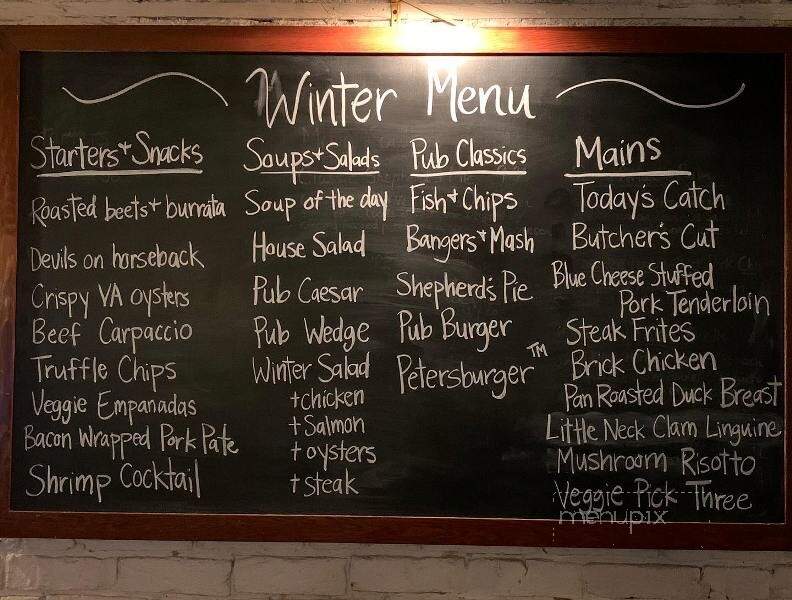 Winter Menu
Starters + Snacks
Roasted beets + burrata
Devils on horseback
Crispy VA oysters
Beef Carpaccio
Truffle Chips
Veggie Empanadas
Bacon Wrapped Pork Pate
Shrimp Cocktail
Soups + Salads
Soup of the day
House Salad
Pub Caesar
Pub Wedge
Winter Salad
+ chicken
+ Salmon
+ oysters
+ steak
Pub Classics
Fish + Chips
Bangers + Mash
Shepherd's Pie
Pub Burger
Petersburger™
Mains
Today's Catch
Butcher's Cut
Blue Cheese Stuffed
Pork Tenderloin
Steak Frites
Brick Chicken
Pan Roasted Duck Breast
Little Neck Clam Linguine
Mushroom Risotto
Veggie Pick Three
menupix